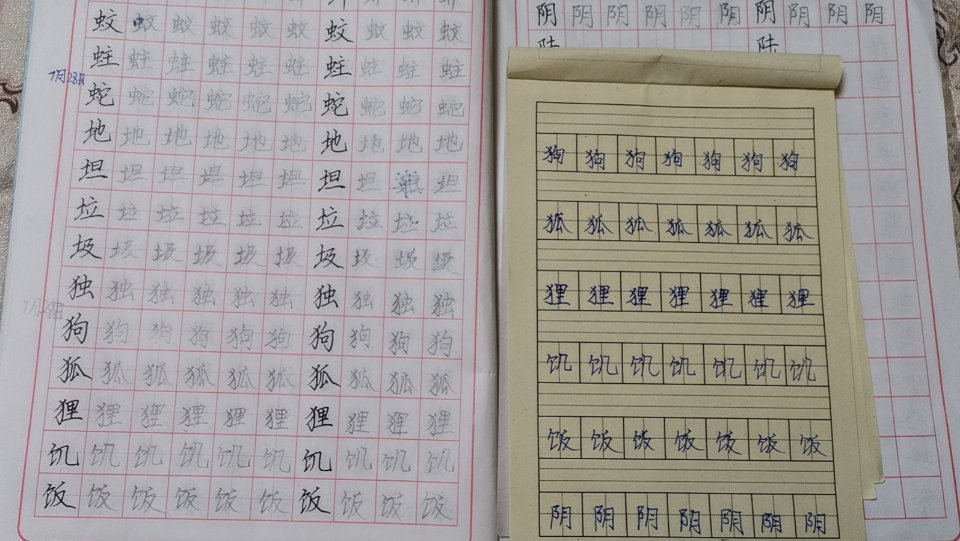 蚊 蚊 蚊 蚊 蚊 蚊 蚊 蚊 蚊 蚊
蛀 蛀 蛀 蛀 蛀 蛀 蛀 蛀 蛀 蛀
7月28日
蛇 蛇 蛇 蛇 蛇 蛇 蛇 蛇 蛇 蛇
地 地 地 地 地 地 地 地 地 地
坦 坦 坦 坦 坦 坦 坦 坦 坦
垃 垃 垃 垃 垃 垃 垃 垃 垃 垃
圾 圾 圾 圾 圾 圾 圾 圾 圾 圾
独 独 独 独 独 独 独 独 独 独
狗 狗 狗 狗 狗 狗 狗 狗 狗 狗
狐 狐 狐 狐 狐 狐 狐 狐 狐 狐
狸 狸 狸 狸 狸 狸 狸 狸 狸 狸
饥 饥 饥 饥 饥 饥 饥 饥 饥 饥
饭 饭 饭 饭 饭 饭 饭 饭 饭 饭
阴 阴 阴 阴 阴 阴 阴 阴 阴 阴
陆 陆
狗 狗 狗 狗 狗 狗 狗
狐 狐 狐 狐 狐 狐 狐
狸 狸 狸 狸 狸 狸 狸
饥 饥 饥 饥 饥 饥 饥
饭 饭 饭 饭 饭 饭 饭
阴 阴 阴 阴 阴 阴 阴